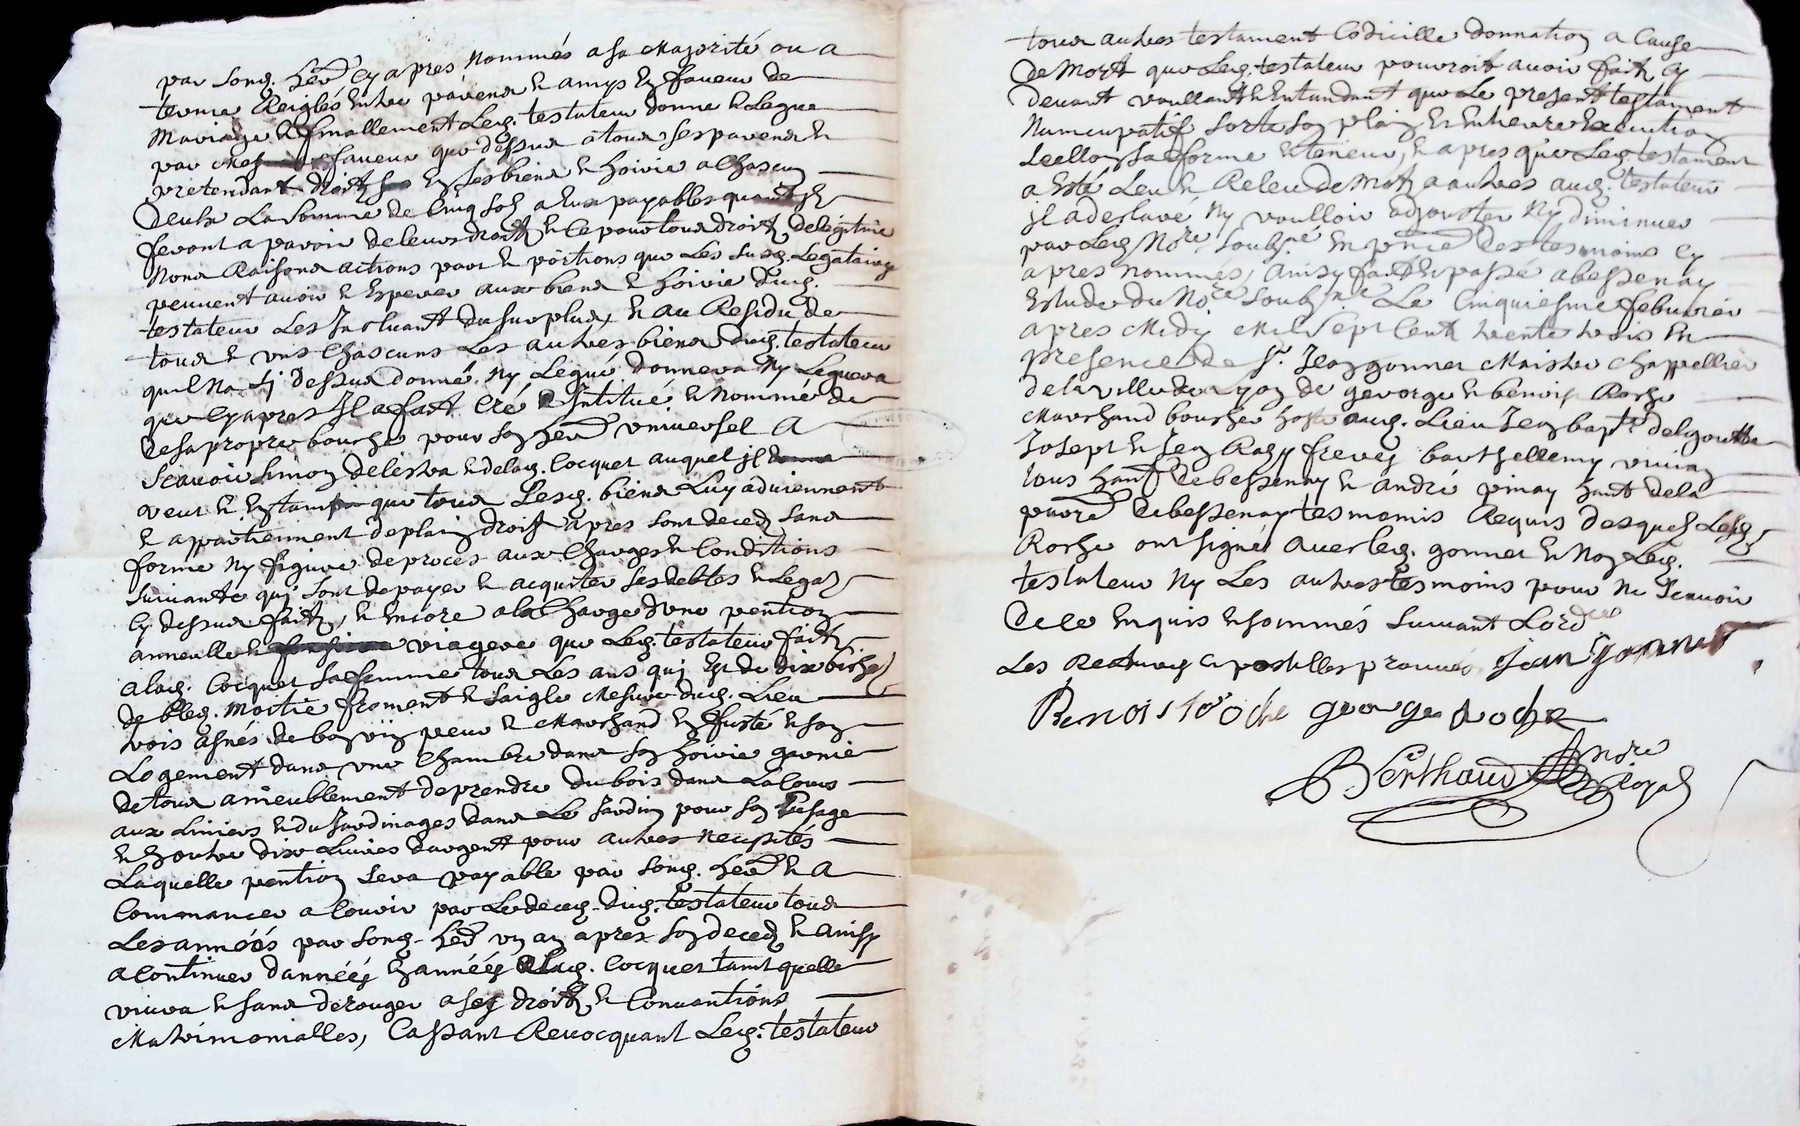 par song. hér cy apres nommés a sa majorité ou a
terme reiglés entre parens & amys en faveur de
mariage & finallement led. testateur donne & legue
par mesme faveur que dessus a tous ses parens &
pretendant droit en ses biens & hoirie a chascun
deulx la somme de cinq sol a eux payables quant ilz
feront apparoir de leurs droitz & ce pour tous droitz de legitime
noms raisons actions part & portions que les susd. legataires
peuvent avoir & esperer aux biens & hoirie dud.
testateur les incluant du surplus, & au residu de
tous & uns chascuns les autres biens dud. testateur
quil na cy dessus donné ny legué donnera ny leguera
que cy apres il a fait créé & institué & nommé de
de sa propre bouche pour son hér universel a
scavoir simon delestra & de lad. cocquet auquel il
veut & entand que tous lesd. biens luy adviennent
& appartiennent de plain droit apres sont deced sans
forme ny figure de proces aux charges & conditions
suivante qui sont de payer & acquiter ses debtes & legaz
cy dessus faitz, & encore a la charge dune pention
annuelle & viagere que led. testateur fait
a lad. cocquet sa femme tous les ans qui est de dix bichez
de bled. moitié froment & saigle mesure dud. lieu
trois asnés de bon vin pur & marchand en fusté & son
logement dans une chambre dans son hoirie garnie
de tous ameublement de prendre du bois dans la cour
aux liniers & du jardinages dans le jardin pour son usage
& en outre dix livres dargent pour autres necessités
laquelle pention sera payable par song. hér & a
commancer a courir par le deced. dud. testateur tous
les années par song. hér un an apres son deced & ainsy
a continuer dannéés en annéés a lad. cocquet tant quelle
vivra & sans deroger a ses droitz & conventions
matrimonialles, cassant revocquant led. testateur
tous autres testament codicille donnation a cause
de mort que led. testateur pouvroit avoir fait cy
devant voullant & entandant que le present testament
nuncupatif sorte son plain & entiere execution
selon sa forme & teneur, & apres que led. testament
a esté leu & releu de mot a autres aud. testateur
il a desclaré ny voulloir adjouster ny diminuer
par led. nore soubné en pnce des tesmoins cy
apres nommés, ainsy fait & passé a bessenay
estude du nore soubné le cinquiesme febvrier
apres midy mil sept cent trente trois en
presence de sr. jean gonnet maistre chappellier
de la ville de lyon de george & benoist roche
marchand boucher hoste aud. lieu jean bapt. delgoutte
josept & jean razy freres barthellemy vivian
tous hant de bessenay & andré pinay hant de la
parre de bessenay tesmoins requis desquelz lesd.
roche ont signés avec led. gonnet & non led.
testateur ny les autres tesmoins pour ne scavoir
de ce enquis & sommés suivant lord
les ratures apostilles prouvés jean gonnet
Benoist Roche george roche
Berthaud nore
Royal